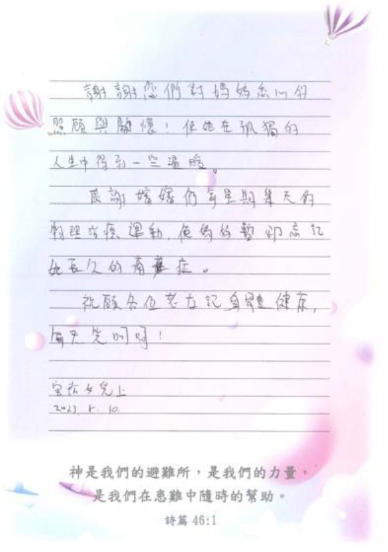 謝謝您們對媽媽悉心的
照顧與關懷！使她在孤獨的
人生中得到一些溫暖。
感謝 們每星期 天的
物理 運動，使媽媽暫 忘記
她長久的 症。
祝願各位 身體健康，
每天笑呵呵！
女兒上
神是我們的避難所，是我們的力量，
是我們在患難中隨時的幫助。
詩篇 46:1